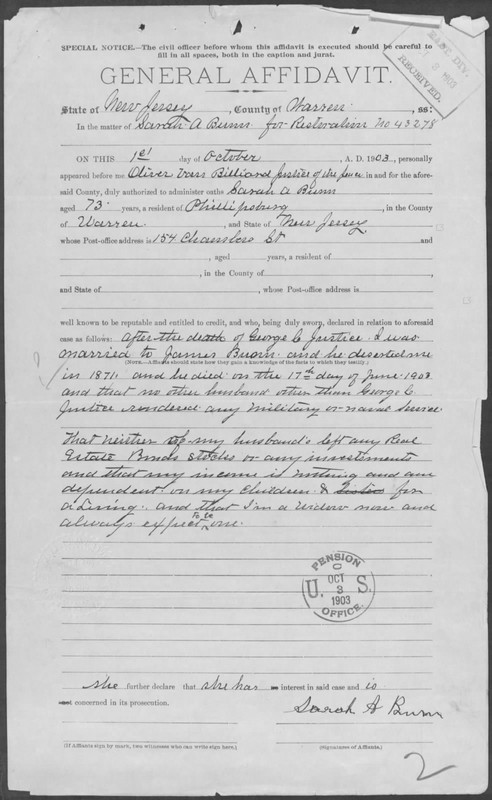 SPECIAL NOTICE.—The civil officer before whom this affidavit is executed should be careful to
fill in all spaces, both in the caption and jurat.
EAST DIV.
1903
RECEIVED.
GENERAL AFFIDAVIT.
State of New Jersey, County of Warren, ss:
In the matter of Sarah A Bunn for Restoration No 43278
ON THIS 1st day of October, A. D. 1903, personally
appeared before me Oliver Van Billiard Justice of the peace in and for the afore-
said County, duly authorized to administer oaths Sarah A Bunn
aged 73 years, a resident of Phillipsburg, in the County
of Warren, and State of New Jersey,
whose Post-office address is 154 Chambers St and
, aged years, a resident of
, in the County of
and State of , whose Post-office address is
well known to be reputable and entitled to credit, and who, being duly sworn, declared in relation to aforesaid
case as follows: After the death of George C Justice I was
married to James Bunn and he deserted me
(NOTE.—Affiants should state how they gain a knowledge of the facts to which they testify.)
in 1871 and he died on the 17th day of June 1903
and that no other husband other than George C
Justice rendered any military or naval service
That neither of my husbands left any Real
Estate Bonds Stocks or any investments
and that my income is nothing and am
dependent on my children & for
a Living. and that I'm a widow now and
always expect to be one.
PENSION
C
U. OCT S.
3
1903
OFFICE.
She further declare that she has interest in said case and is
not concerned in its prosecution.
Sarah A Bunn
(If Affiants sign by mark, two witnesses who can write sign here.)
(Signatures of Affiants.)
2